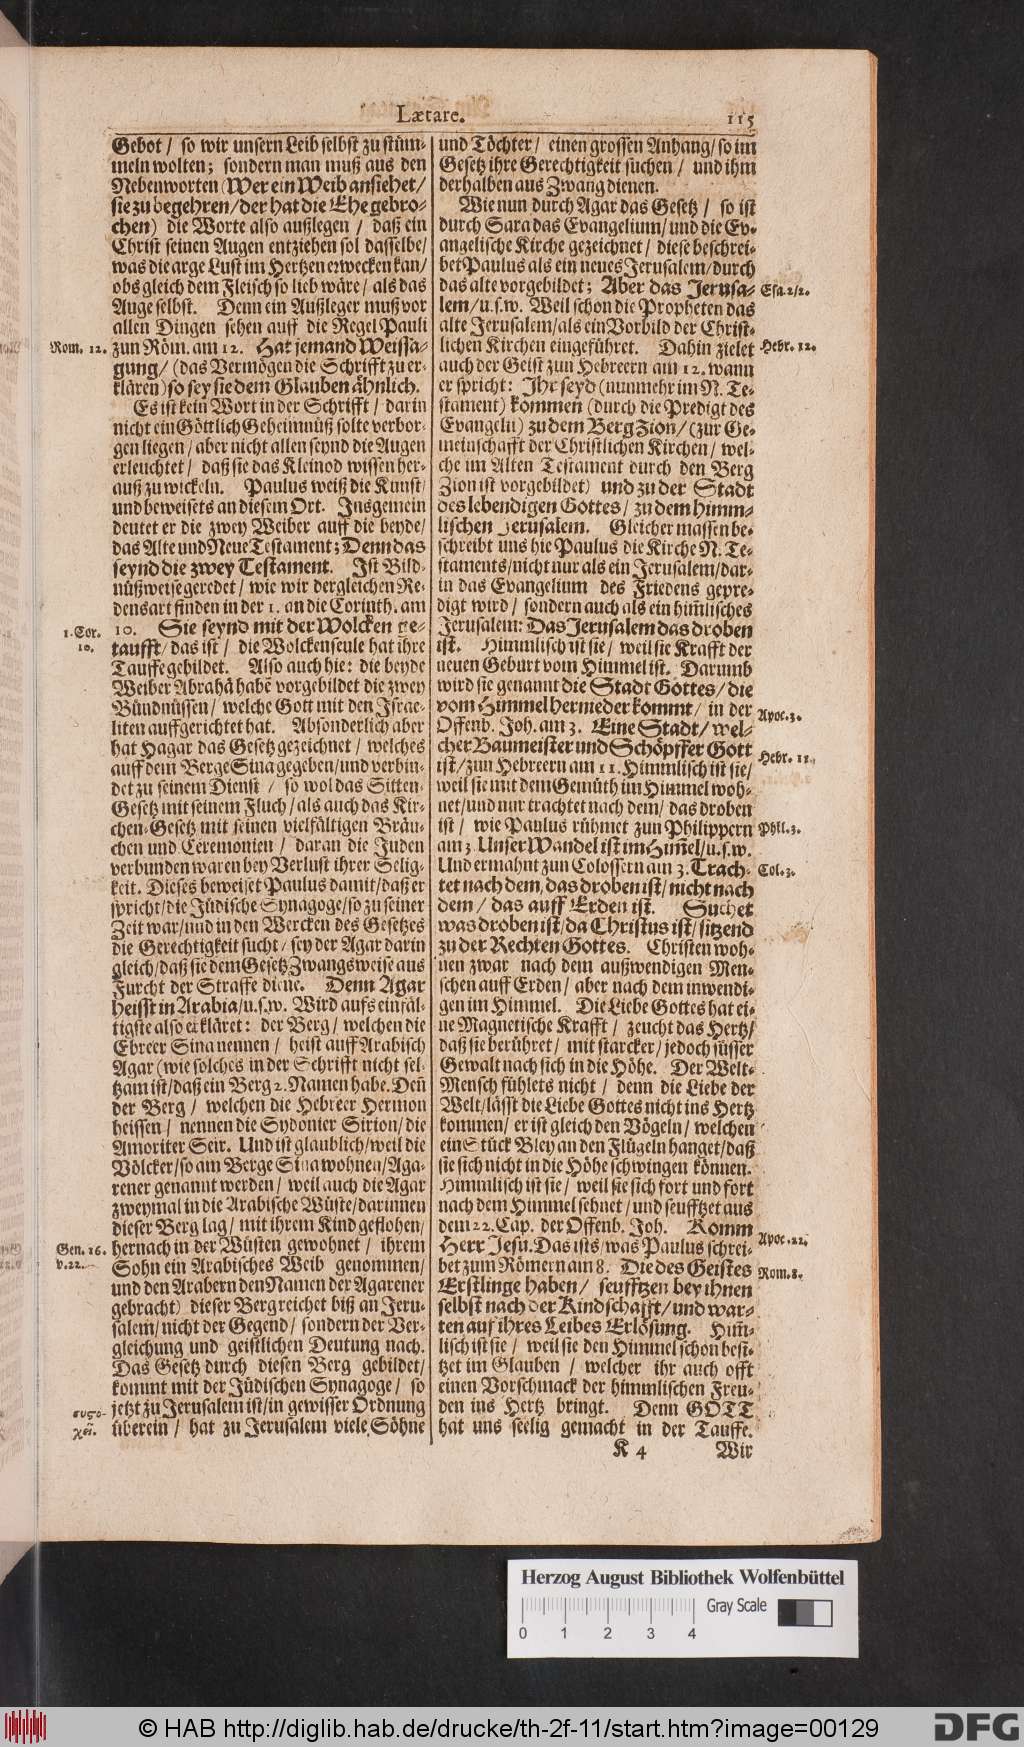 Lætare.
115
Gebot / so wir unsern Leib selbst zu stüm-
meln wolten; sondern man muß aus den
Nebenworten (Wer ein Weib ansiehet/
sie zu begehren/der hat die Ehe gebro-
chen) die Worte also außlegen / daß ein
Christ seinen Augen entziehen sol dasselbe/
was die arge Lust im Hertzen erwecken kan/
obs gleich dem Fleisch so lieb wäre / als das
Auge selbst. Denn ein Außleger muß vor
allen Dingen sehen auff die Regel Pauli
Rom. 12.
zun Röm. am 12. Hat jemand Weissa-
gung/ (das Vermögen die Schrifft zu er-
klären) so sey sie dem Glauben ähnlich.
Es ist kein Wort in der Schrifft / darin
nicht ein Göttlich Geheimnüß solte verbor-
gen liegen / aber nicht allen seynd die Augen
erleuchtet / daß sie das Kleinod wissen her-
auß zu wickeln. Paulus weiß die Kunst/
und beweisets an diesem Ort. Insgemein
deutet er die zwey Weiber auff die beyde/
das Alte und Neue Testament; Denn das
seynd die zwey Testament. Ist Bild-
nüßweise geredet / wie wir dergleichen Re-
densart finden in der 1. an die Corinth. am
1. Cor.
10.
10. Sie seynd mit der Wolcken ge-
taufft/ das ist / die Wolckenseule hat ihre
Tauffe gebildet. Also auch hie: die beyde
Weiber Abrahã habẽ vorgebildet die zwey
Bündnüssen / welche Gott mit den Israe-
liten auffgerichtet hat. Absonderlich aber
hat Hagar das Gesetz gezeichnet / welches
auff dem Berge Sina gegeben/und verbin-
det zu seinem Dienst / so wol das Sitten-
Gesetz mit seinem Fluch / als auch das Kir-
chen-Gesetz mit seinen vielfältigen Bräu-
chen und Ceremonien / daran die Juden
verbunden waren bey Verlust ihrer Selig-
keit. Dieses beweiset Paulus damit/daß er
spricht/die Jüdische Synagoge/so zu seiner
Zeit war/und in den Wercken des Gesetzes
die Gerechtigkeit sucht / sey der Agar darin
gleich/daß sie dem Gesetz Zwangsweise aus
Furcht der Straffe diene. Denn Agar
heisst in Arabia/u.s.w. Wird aufs einfäl-
tigste also erkläret: der Berg / welchen die
Ebreer Sina nennen / heist auff Arabisch
Agar (wie solches in der Schrifft nicht sel-
tzam ist/daß ein Berg 2. Namen habe. Deñ
der Berg / welchen die Hebreer Hermon
heissen / nennen die Sydonier Sirion/die
Amoriter Seir. Und ist glaublich/weil die
Völcker/so am Berge Sina wohnen/Aga-
rener genannt werden / weil auch die Agar
zweymal in die Arabische Wüste/darinnen
dieser Berg lag / mit ihrem Kind geflohen/
Gen. 16.
v.22.
hernach in der Wüsten gewohnet / ihrem
Sohn ein Arabisches Weib genommen/
und den Arabern den Namen der Agarener
gebracht) dieser Berg reichet biß an Jeru-
salem/ nicht der Gegend / sondern der Ver-
gleichung und geistlichen Deutung nach.
Das Gesetz durch diesen Berg gebildet/
kommt mit der Jüdischen Synagoge / so
jetzt zu Jerusalem ist/in gewisser Ordnung
überein / hat zu Jerusalem viele Söhne
und Töchter / einen grossen Anhang/so im
Gesetz ihre Gerechtigkeit suchen / und ihm
derhalben aus Zwang dienen.
Wie nun durch Agar das Gesetz / so ist
durch Sara das Evangelium/ und die Ev-
angelische Kirche gezeichnet / diese beschrei-
bet Paulus als ein neues Jerusalem/durch
das alte vorgebildet; Aber das Jerusa-
Esa. 2/2.
lem/u.s.w. Weil schon die Propheten das
alte Jerusalem/als ein Vorbild der Christ-
lichen Kirchen eingeführet. Dahin zielet
Hebr. 12.
auch der Geist zun Hebreern am 12. wann
er spricht: Ihr seyd (nunmehr im N. Te-
stament) kommen (durch die Predigt des
Evangelii) zu dem Berg Zion/ (zur Ge-
meinschafft der Christlichen Kirchen / wel-
che im Alten Testament durch den Berg
Zion ist vorgebildet) und zu der Stadt
des lebendigen Gottes / zu dem himm-
lischen Jerusalem. Gleicher massen be-
schreibt uns hie Paulus die Kirche N. Te-
staments/nicht nur als ein Jerusalem/dar-
in das Evangelium des Friedens gepre-
digt wird / sondern auch als ein him̃lisches
Jerusalem: Das Jerusalem das droben
ist. Himmlisch ist sie / weil sie Krafft der
neuen Geburt vom Himmel ist. Darumb
wird sie genannt die Stadt Gottes / die
vom Himmel hernieder kommt/ in der
Apoc. 3.
Offenb. Joh. am 3. Eine Stadt/ wel-
cher Baumeister und Schöpffer Gott
Hebr. 11.
ist/ zun Hebreern am 11. Himmlisch ist sie/
weil sie mit dem Gemüth im Himmel woh-
net/und nur trachtet nach dem / das droben
ist / wie Paulus rühmet zun Philippern
Phil. 3.
am 3. Unser Wandel ist im Him̃el/u.s.w.
Und ermahnt zun Colossern am 3. Trach-
Col. 3.
tet nach dem, das droben ist/ nicht nach
dem / das auff Erden ist. Suchet
was droben ist/da Christus ist/ sitzend
zu der Rechten Gottes. Christen woh-
nen zwar nach dem außwendigen Men-
schen auff Erden / aber nach dem inwendi-
gen im Himmel. Die Liebe Gottes hat ei-
ne Magnetische Krafft / zeucht das Hertz/
daß sie berühret / mit starcker/ jedoch süsser
Gewalt nach sich in die Höhe. Der Welt-
Mensch fühlets nicht / denn die Liebe der
Welt/lässt die Liebe Gottes nicht ins Hertz
kommen/ er ist gleich den Vögeln/ welchen
ein Stück Bley an den Flügeln hanget/daß
sie sich nicht in die Höhe schwingen können.
Himmlisch ist sie / weil sie sich fort und fort
nach dem Himmel sehnet / und seufftzet aus
dem 22. Cap. der Offenb. Joh. Komm
Apoc. 22.
Herr Jesu. Das ists/was Paulus schrei-
bet zun Römern am 8. Die des Geistes
Rom. 8.
Erstlinge haben / seufftzen bey ihnen
selbst nach der Kindschafft/ und war-
ten auf ihres Leibes Erlösung. Him̃-
lisch ist sie / weil sie den Himmel schon besi-
tzet im Glauben / welcher ihr auch offt
einen Vorschmack der himmlischen Freu-
den ins Hertz bringt. Denn GOTT
hat uns seelig gemacht in der Tauffe.
K 4
Wir
Herzog August Bibliothek Wolfenbüttel
Gray Scale
0 1 2 3 4
© HAB http://diglib.hab.de/drucke/th-2f-11/start.htm?image=00129
DFG